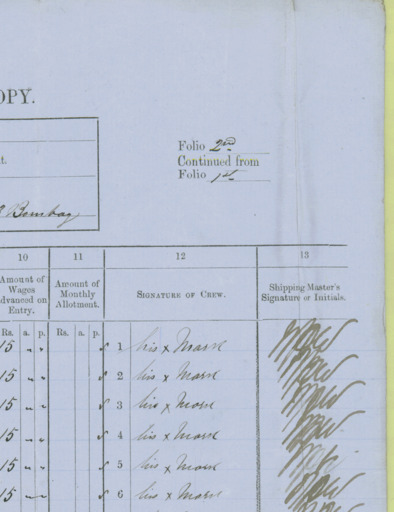 OPY.
Folio 2nd
Continued from
Folio 1st
t.
Bombay
10 11 12 13
Amount of Wages advanced on Entry. Amount of Monthly Allotment. SIGNATURE OF CREW. Shipping Master's Signature or Initials.
Rs. a. p. Rs. a. p.
15 " " 1 his x Mark
15 " " 2 his x Mark
15 " " 3 his x Mark
15 " " 4 his x Mark
15 " " 5 his x Mark
15 " " 6 his x Mark